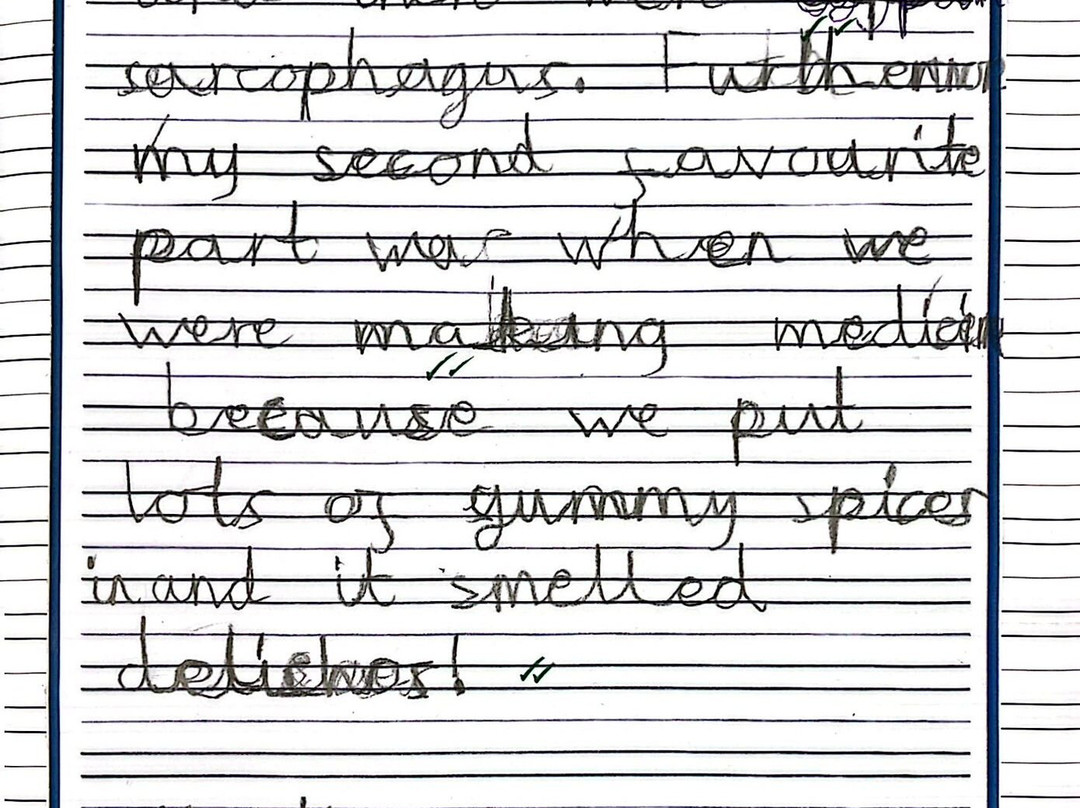 there were
sarcophagus. Futhermor
my second favourite
part was when we
were making medicin
because we put
lots of gummy spices
in and it smelled
delishos!